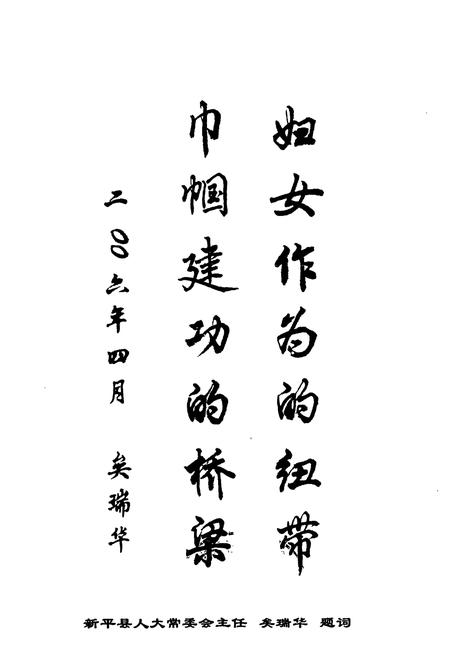 妇女作为的纽带
巾帼建功的桥梁
二〇〇六年四月 矣瑞华
新平县人大常委会主任 矣瑞华 题词